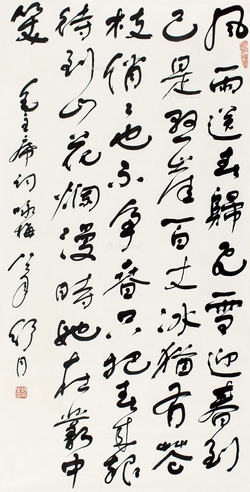 風雨送春歸飛雪迎春到
已是懸崖百丈冰猶有花
枝俏〻也不争春只把春來報
待到山花爛漫時她在叢中
笑
毛主席詞咏梅 舒同